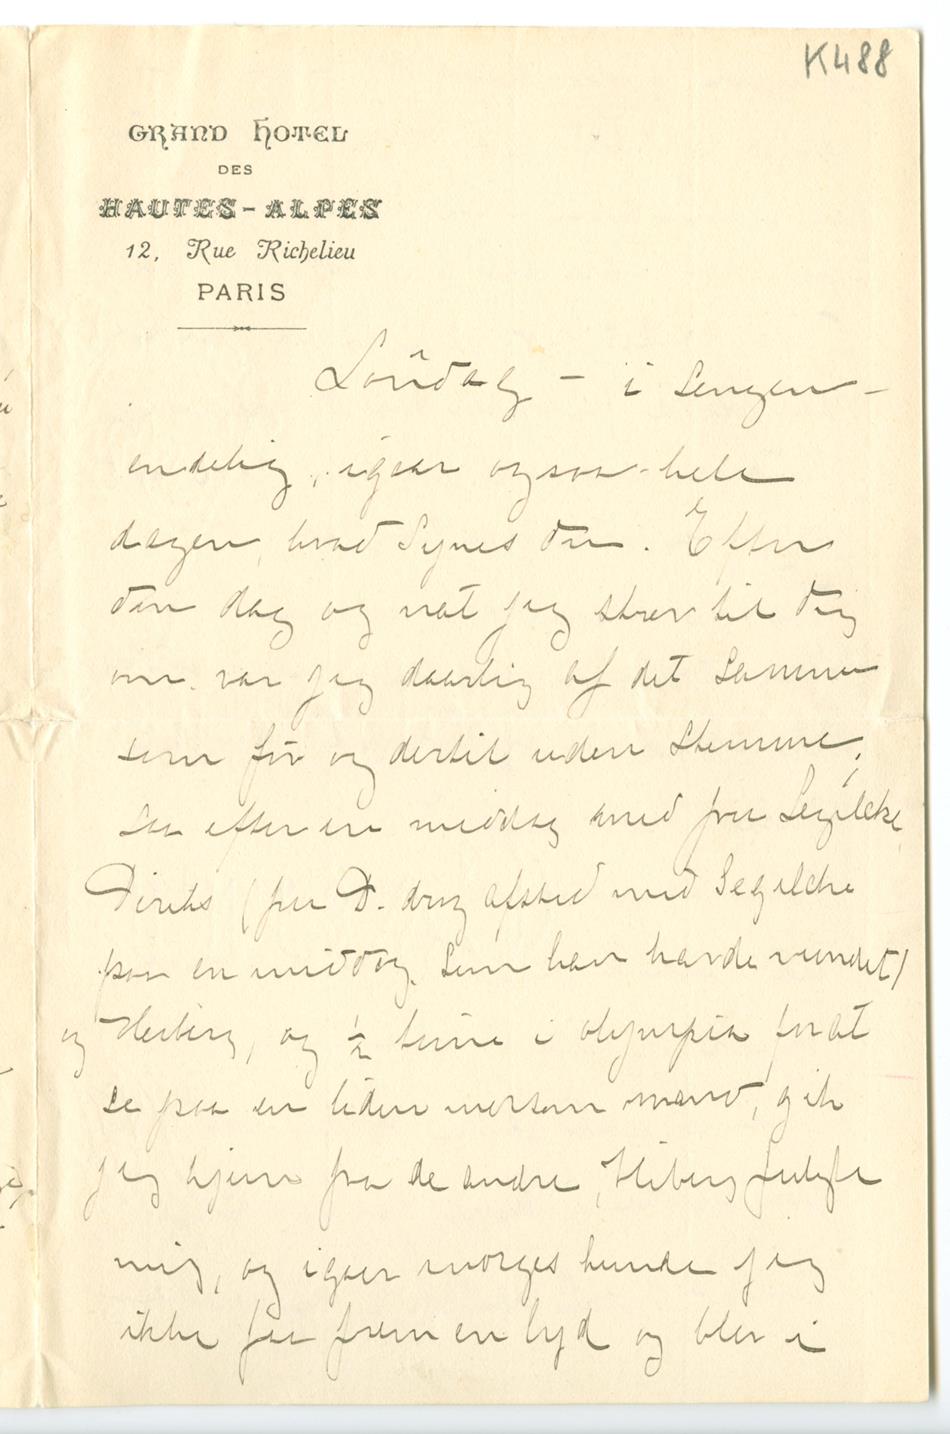 K488
GRAND HOTEL
DES
HAUTES-ALPES
12, Rue Richelieu
PARIS
Löndag – i sengen –
endelig, igaar ogsaa hele
dagen, hvad synes du. Efter
den dag og nat jeg skrev til dig
om var jeg daarlig af det samme
som før og dertil uden stemme;
saa efter en middag med fru Segelcke,
Diriks (fru D. drog afsted med Segelcke
paa en middag som han havde vundet)
og Heiberg, og ½ time i olympia for at
se paa en liden morsom mand, gik
jeg hjem fra de andre, Heiberg fulgte
mig, og igaar morges kunde jeg
ikke faa frem en lyd og blev i